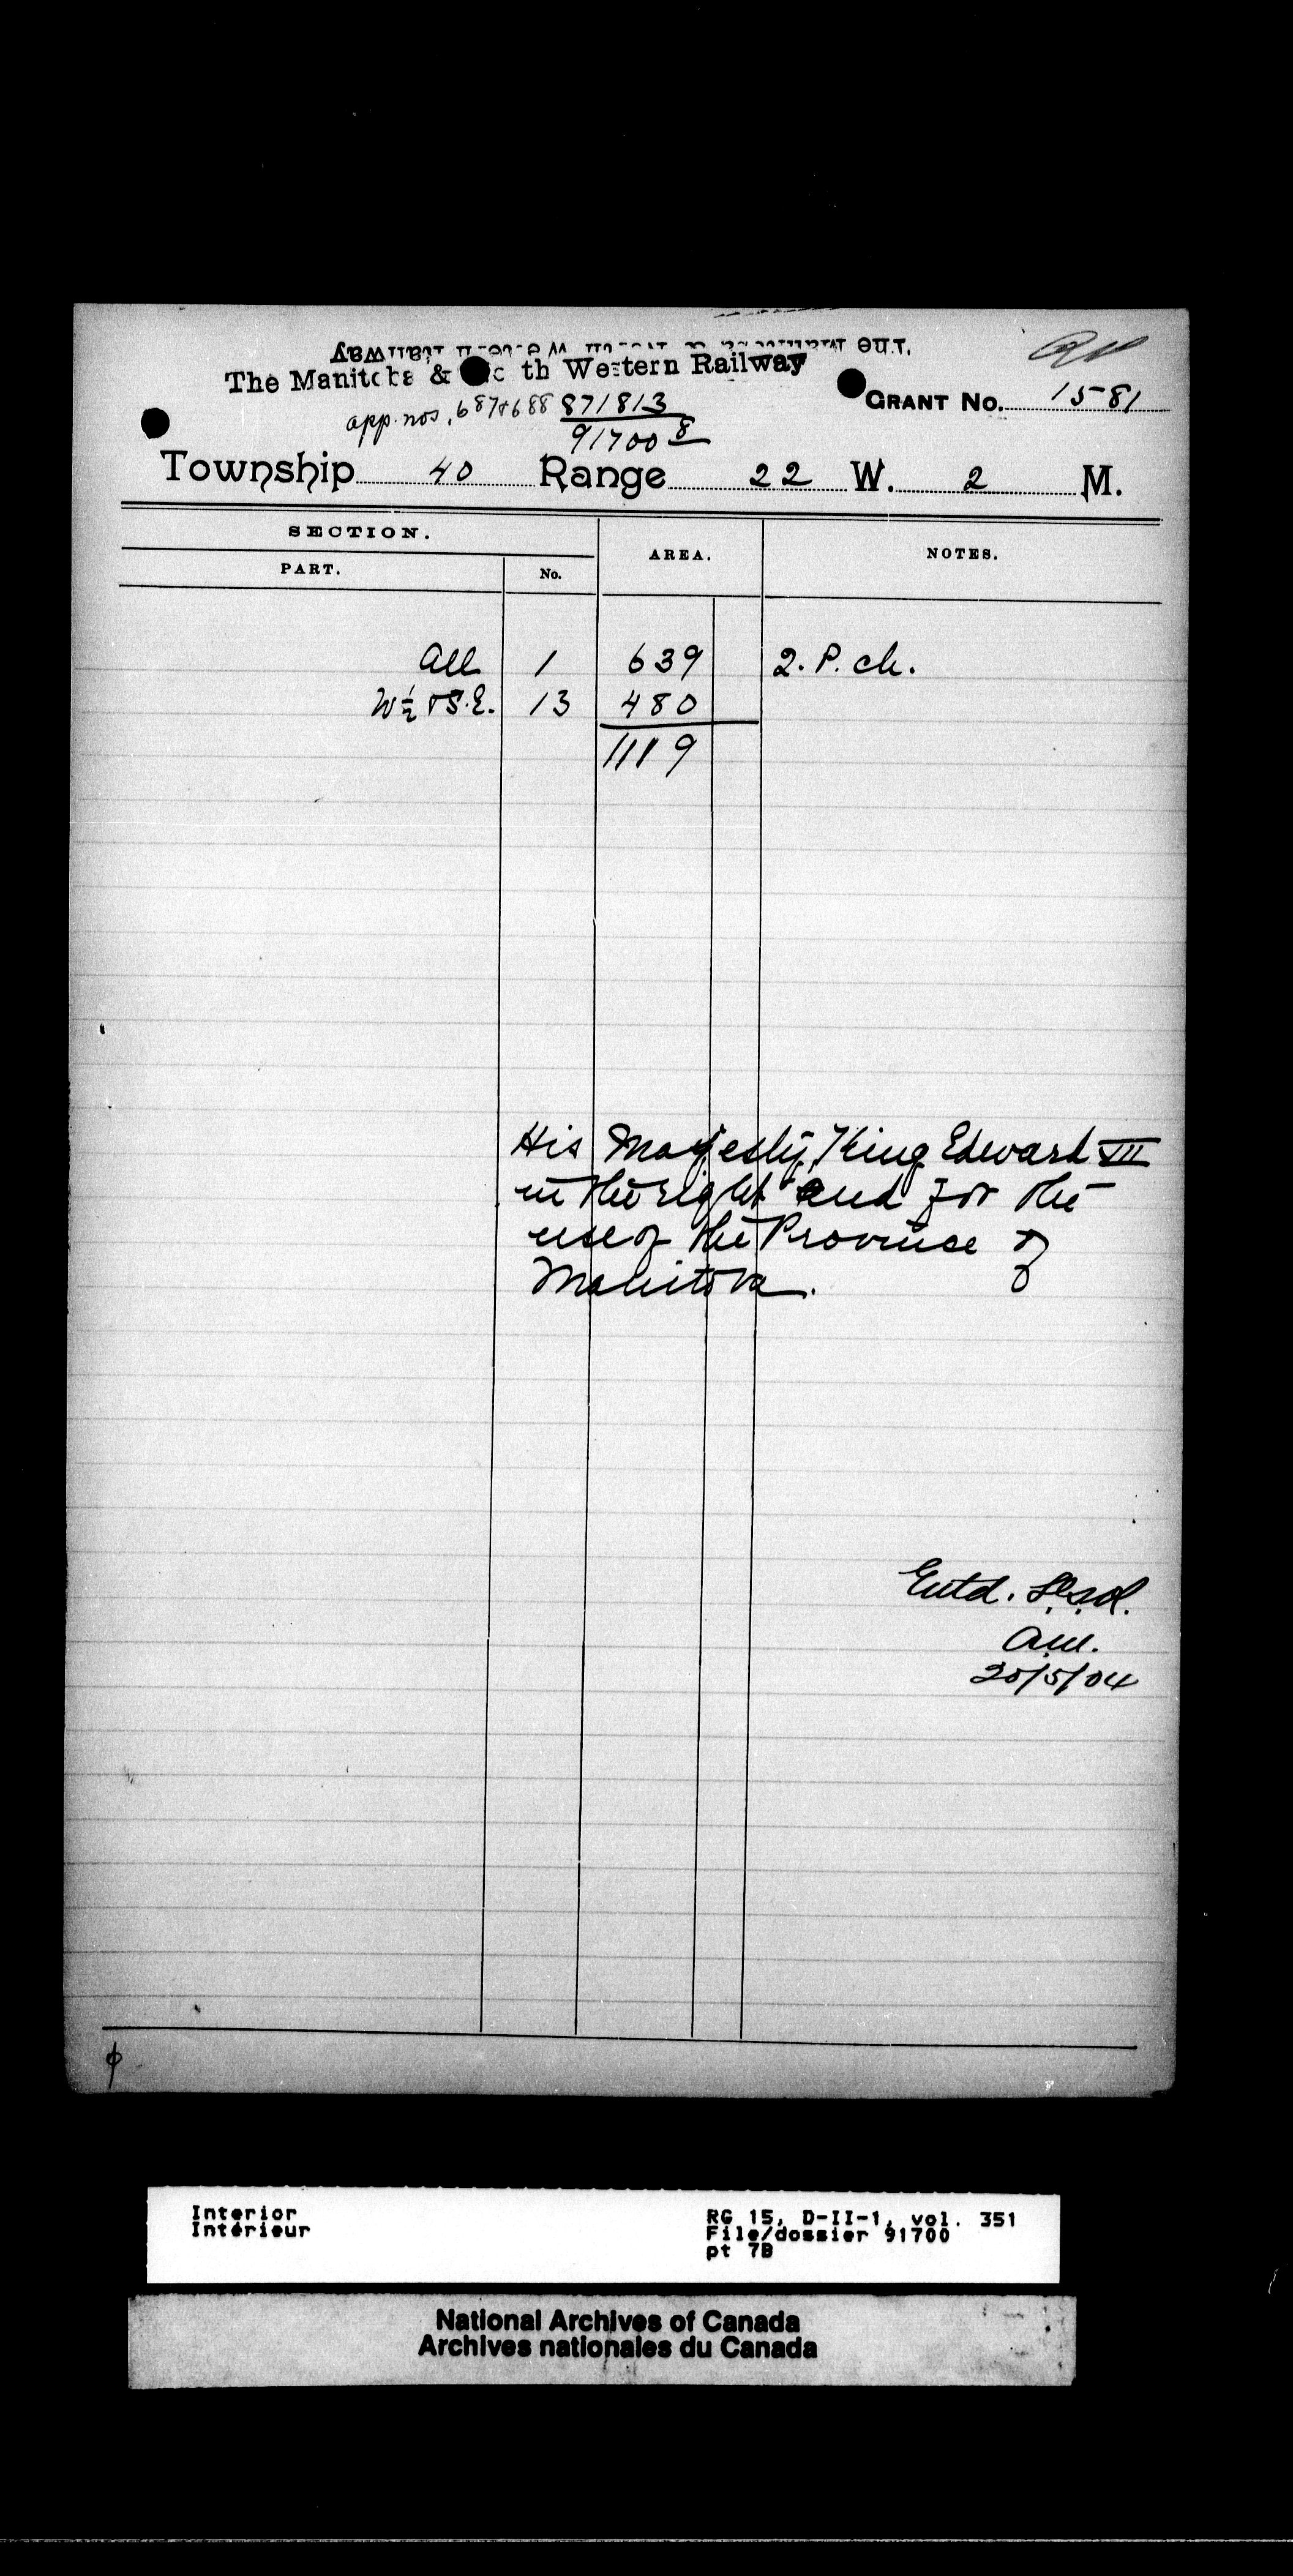 The Manitoba & North Western Railway
The Manitoba & North Western Railway
GRANT No. 1581
app. nos. 687 & 688 871813
91700 8
Township 40 Range 22 W. 2 M.
SECTION.
AREA.
NOTES.
PART.
No.
All 1 639 2. P. ch.
W ½ & S.E. 13 480
1119
His Majesty King Edward VII
in the right and for the
use of the Province of
Manitoba.
Entd.
20/5/04
Interior
Intérieur
RG 15, D-II-1, vol. 351
File/dossier 91700
pt 7B
National Archives of Canada
Archives nationales du Canada